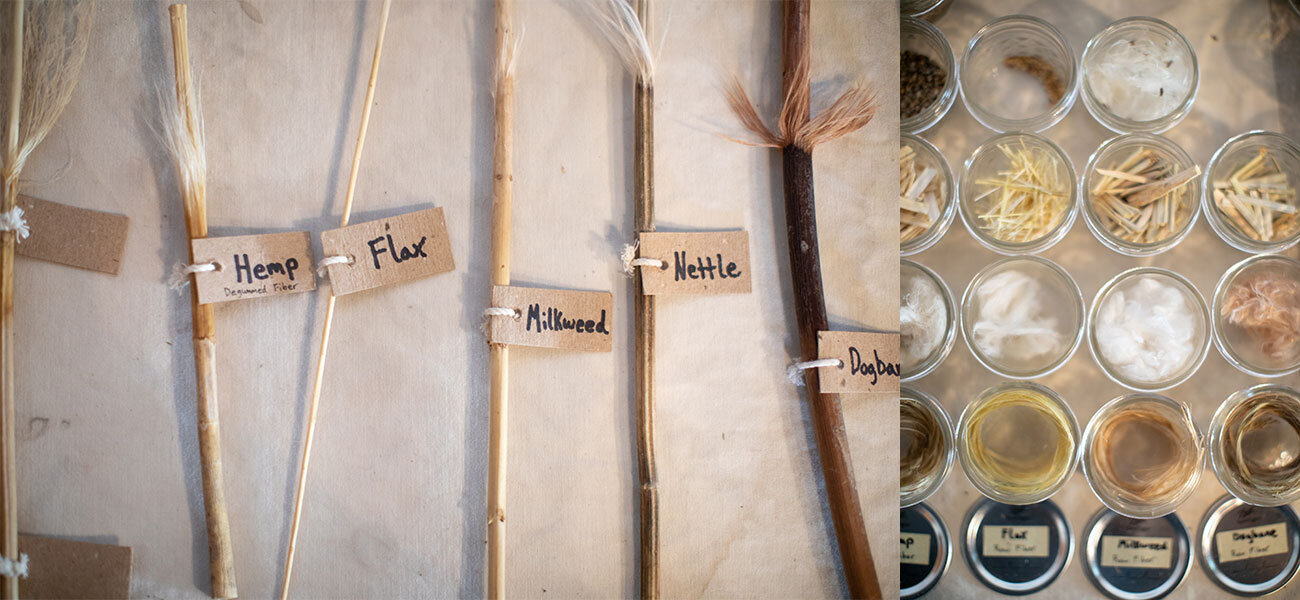 Hemp
Degummed Fiber
Flax
Milkweed
Nettle
Dogba
mp
Flax
Milkweed
Dogbane
Raw Fiber